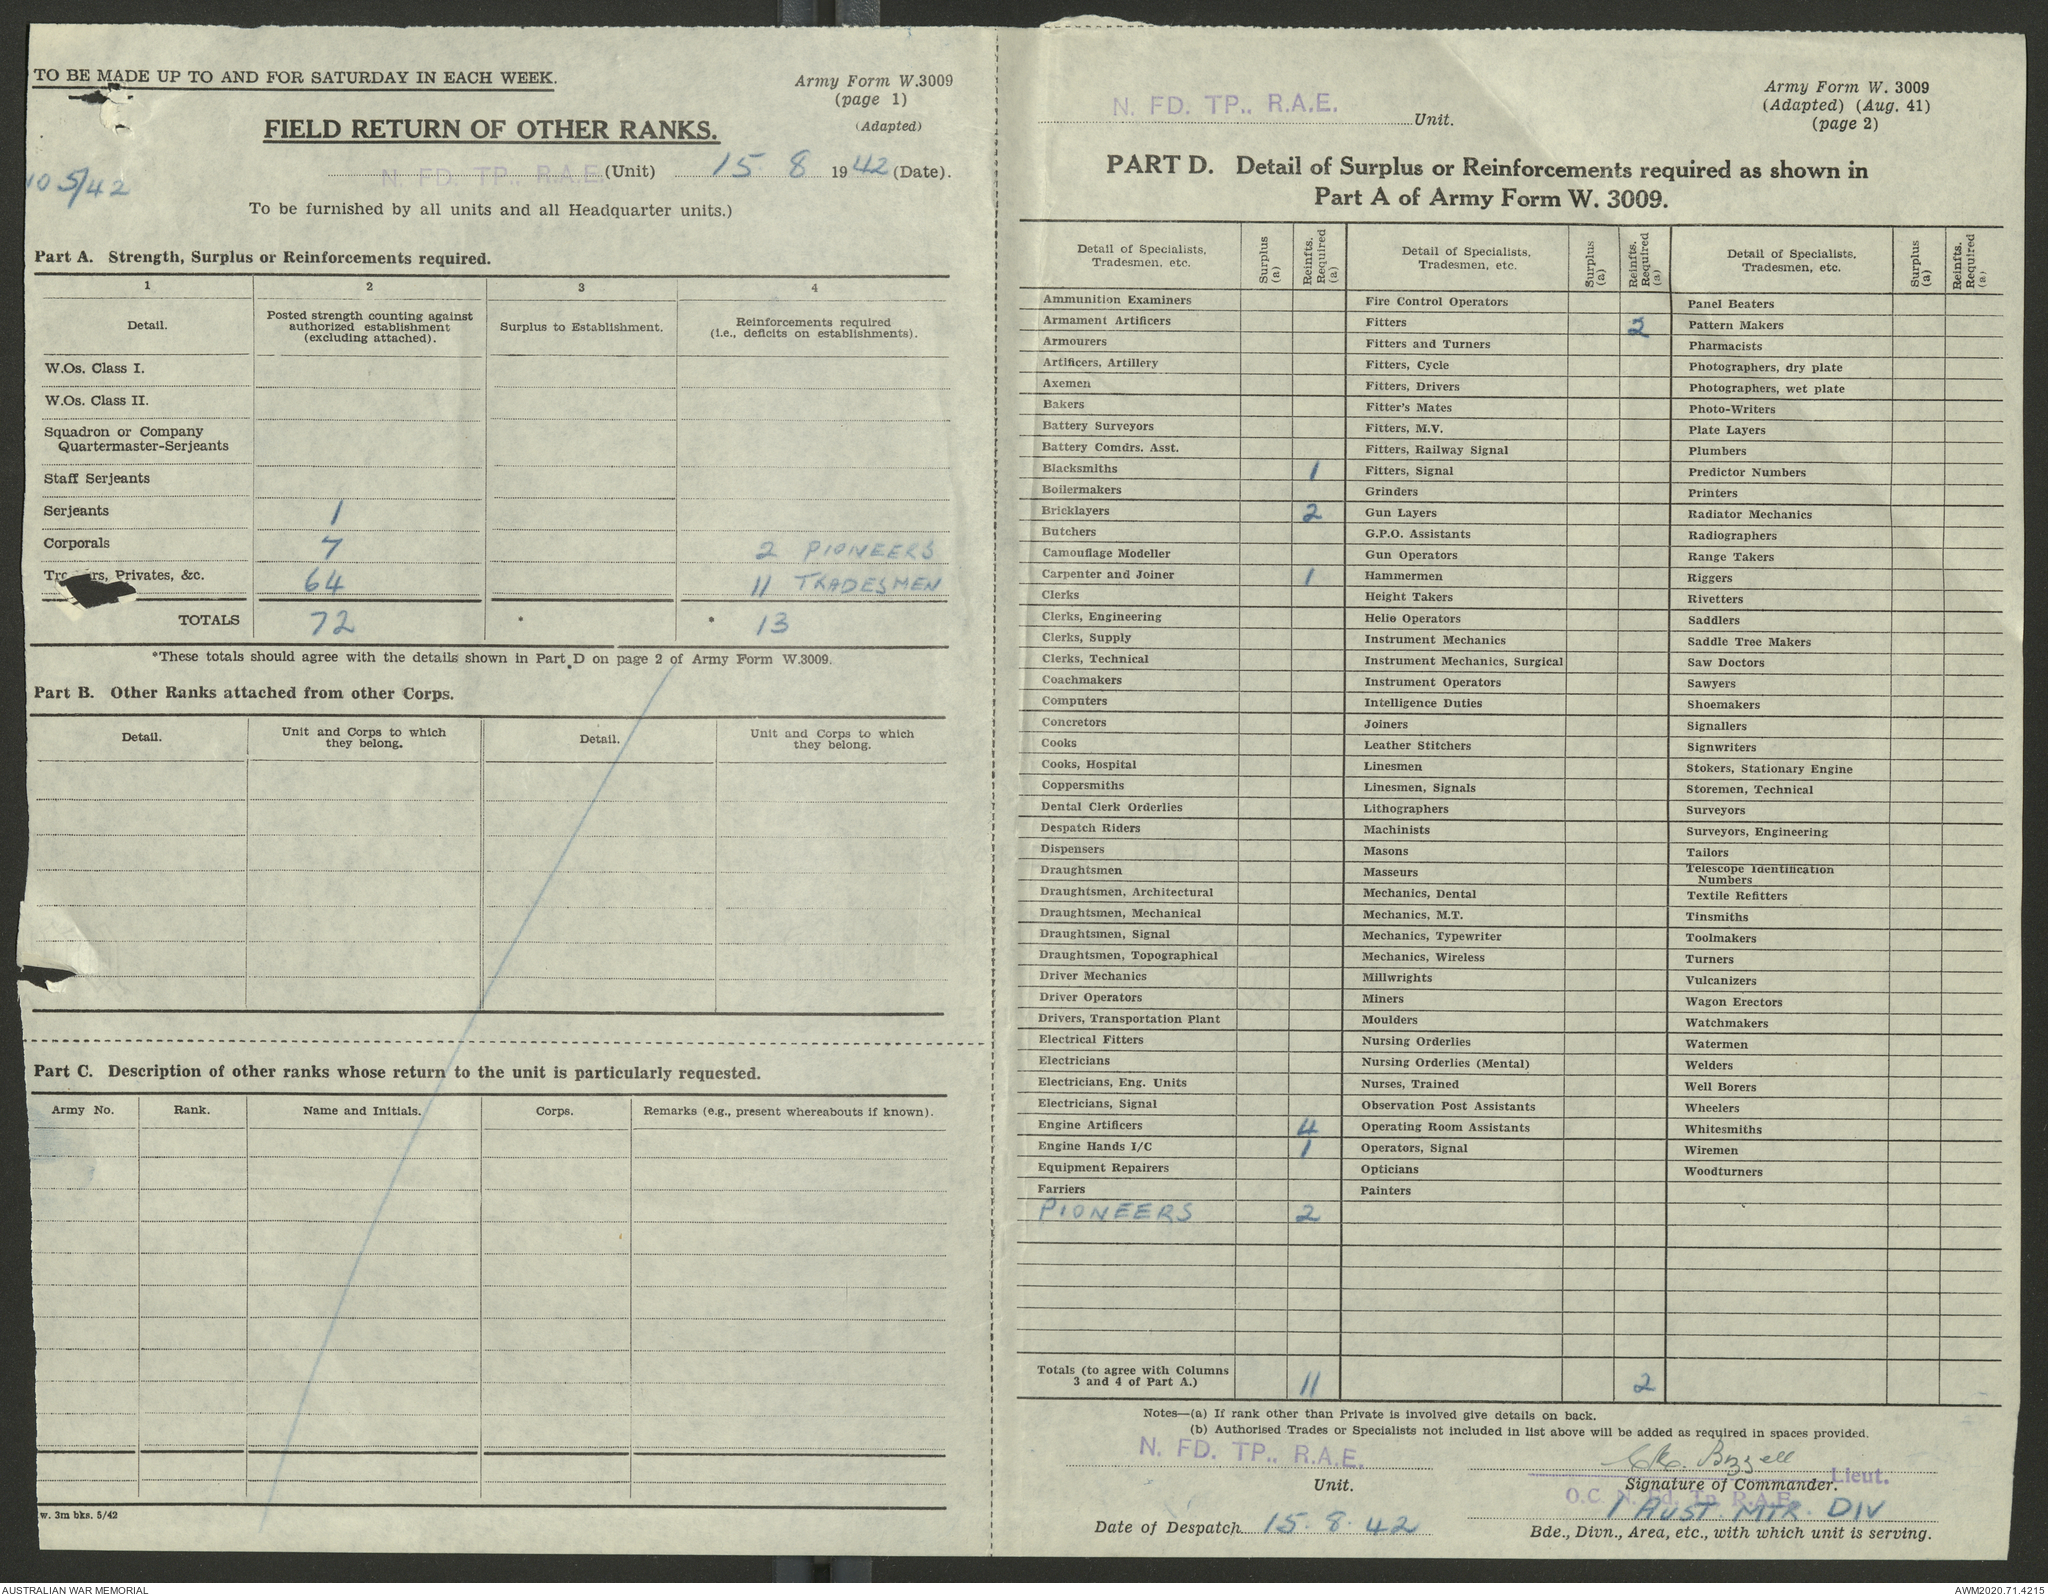 TO BE MADE UP TO AND FOR SATURDAY IN EACH WEEK.
Army Form W.3009
(page 1)
(Adapted)
FIELD RETURN OF OTHER RANKS.
N. FD. TP., R.A.E. (Unit) 15. 8 1942 (Date).
5/42
To be furnished by all units and all Headquarter units.)
Part A. Strength, Surplus or Reinforcements required.
1 2 3 4
Detail. Posted strength counting against authorized establishment (excluding attached). Surplus to Establishment. Reinforcements required (i.e., deficits on establishments).
W.Os. Class I.
W.Os. Class II.
Squadron or Company
Quartermaster-Serjeants
Staff Serjeants
Serjeants 1
Corporals 7 2 PIONEERS
Privates, &c. 64 11 TRADESMEN
TOTALS 72 * * 13
*These totals should agree with the details shown in Part D on page 2 of Army Form W.3009.
Part B. Other Ranks attached from other Corps.
Detail. Unit and Corps to which they belong. Detail. Unit and Corps to which they belong.
Part C. Description of other ranks whose return to the unit is particularly requested.
Army No. Rank. Name and Initials. Corps. Remarks (e.g., present whereabouts if known).
w. 3m bks. 5/42
N. FD. TP., R.A.E. Unit.
Army Form W. 3009
(Adapted) (Aug. 41)
(page 2)
PART D. Detail of Surplus or Reinforcements required as shown in
Part A of Army Form W. 3009.
Detail of Specialists, Tradesmen, etc. Surplus (a) Reinfts. Required (a) Detail of Specialists, Tradesmen, etc. Surplus (a) Reinfts. Required (a) Detail of Specialists, Tradesmen, etc. Surplus (a) Reinfts. Required (a)
Ammunition Examiners Fire Control Operators Panel Beaters
Armament Artificers Fitters 2 Pattern Makers
Armourers Fitters and Turners Pharmacists
Artificers, Artillery Fitters, Cycle Photographers, dry plate
Axemen Fitters, Drivers Photographers, wet plate
Bakers Fitter's Mates Photo-Writers
Battery Surveyors Fitters, M.V. Plate Layers
Battery Comdrs. Asst. Fitters, Railway Signal Plumbers
Blacksmiths 1 Fitters, Signal Predictor Numbers
Boilermakers Grinders Printers
Bricklayers 2 Gun Layers Radiator Mechanics
Butchers G.P.O. Assistants Radiographers
Camouflage Modeller Gun Operators Range Takers
Carpenter and Joiner 1 Hammermen Riggers
Clerks Height Takers Rivetters
Clerks, Engineering Helio Operators Saddlers
Clerks, Supply Instrument Mechanics Saddle Tree Makers
Clerks, Technical Instrument Mechanics, Surgical Saw Doctors
Coachmakers Instrument Operators Sawyers
Computers Intelligence Duties Shoemakers
Concretors Joiners Signallers
Cooks Leather Stitchers Signwriters
Cooks, Hospital Linesmen Stokers, Stationary Engine
Coppersmiths Linesmen, Signals Storemen, Technical
Dental Clerk Orderlies Lithographers Surveyors
Despatch Riders Machinists Surveyors, Engineering
Dispensers Masons Tailors
Draughtsmen Masseurs Telescope Identification Numbers
Draughtsmen, Architectural Mechanics, Dental Textile Refitters
Draughtsmen, Mechanical Mechanics, M.T. Tinsmiths
Draughtsmen, Signal Mechanics, Typewriter Toolmakers
Draughtsmen, Topographical Mechanics, Wireless Turners
Driver Mechanics Millwrights Vulcanizers
Driver Operators Miners Wagon Erectors
Drivers, Transportation Plant Moulders Watchmakers
Electrical Fitters Nursing Orderlies Watermen
Electricians Nursing Orderlies (Mental) Welders
Electricians, Eng. Units Nurses, Trained Well Borers
Electricians, Signal Observation Post Assistants Wheelers
Engine Artificers 4 Operating Room Assistants Whitesmiths
Engine Hands I/C 1 Operators, Signal Wiremen
Equipment Repairers Opticians Woodturners
Farriers Painters
PIONEERS 2
Totals (to agree with Columns 3 and 4 of Part A.) 11 2
Notes—(a) If rank other than Private is involved give details on back.
(b) Authorised Trades or Specialists not included in list above will be added as required in spaces provided.
N. FD. TP., R.A.E.
Unit.
Bizzell Lieut.
Signature of Commander.
O.C. N. Fd. Tp. R.A.E.
1 AUST. MTR. DIV
Date of Despatch 15. 8. 42
Bde., Divn., Area, etc., with which unit is serving.
AUSTRALIAN WAR MEMORIAL
AWM2020.71.4215